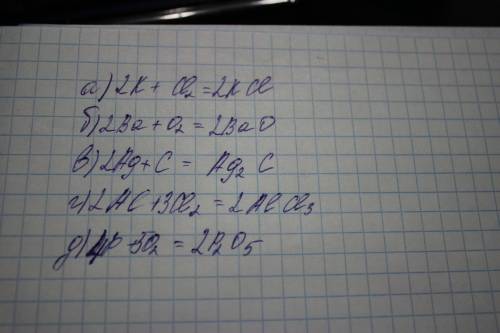 а) 2K + Cl₂ = 2KCl
б) 2Ba + O₂ = 2BaO
в) 2Ag + C = Ag₂C
г) 2Al + 3Cl₂ = 2AlCl₃
д) 4P + 5O₂ = 2P₂O₅